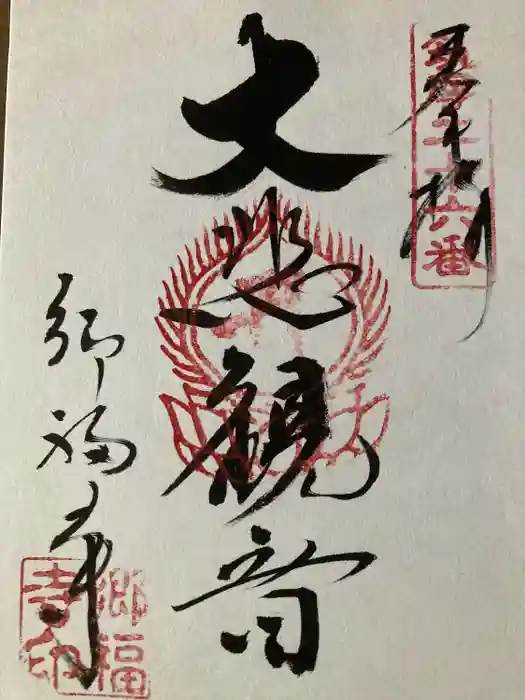 奉拝
二十六番
大悲観音
郷福寺
郷福
寺印